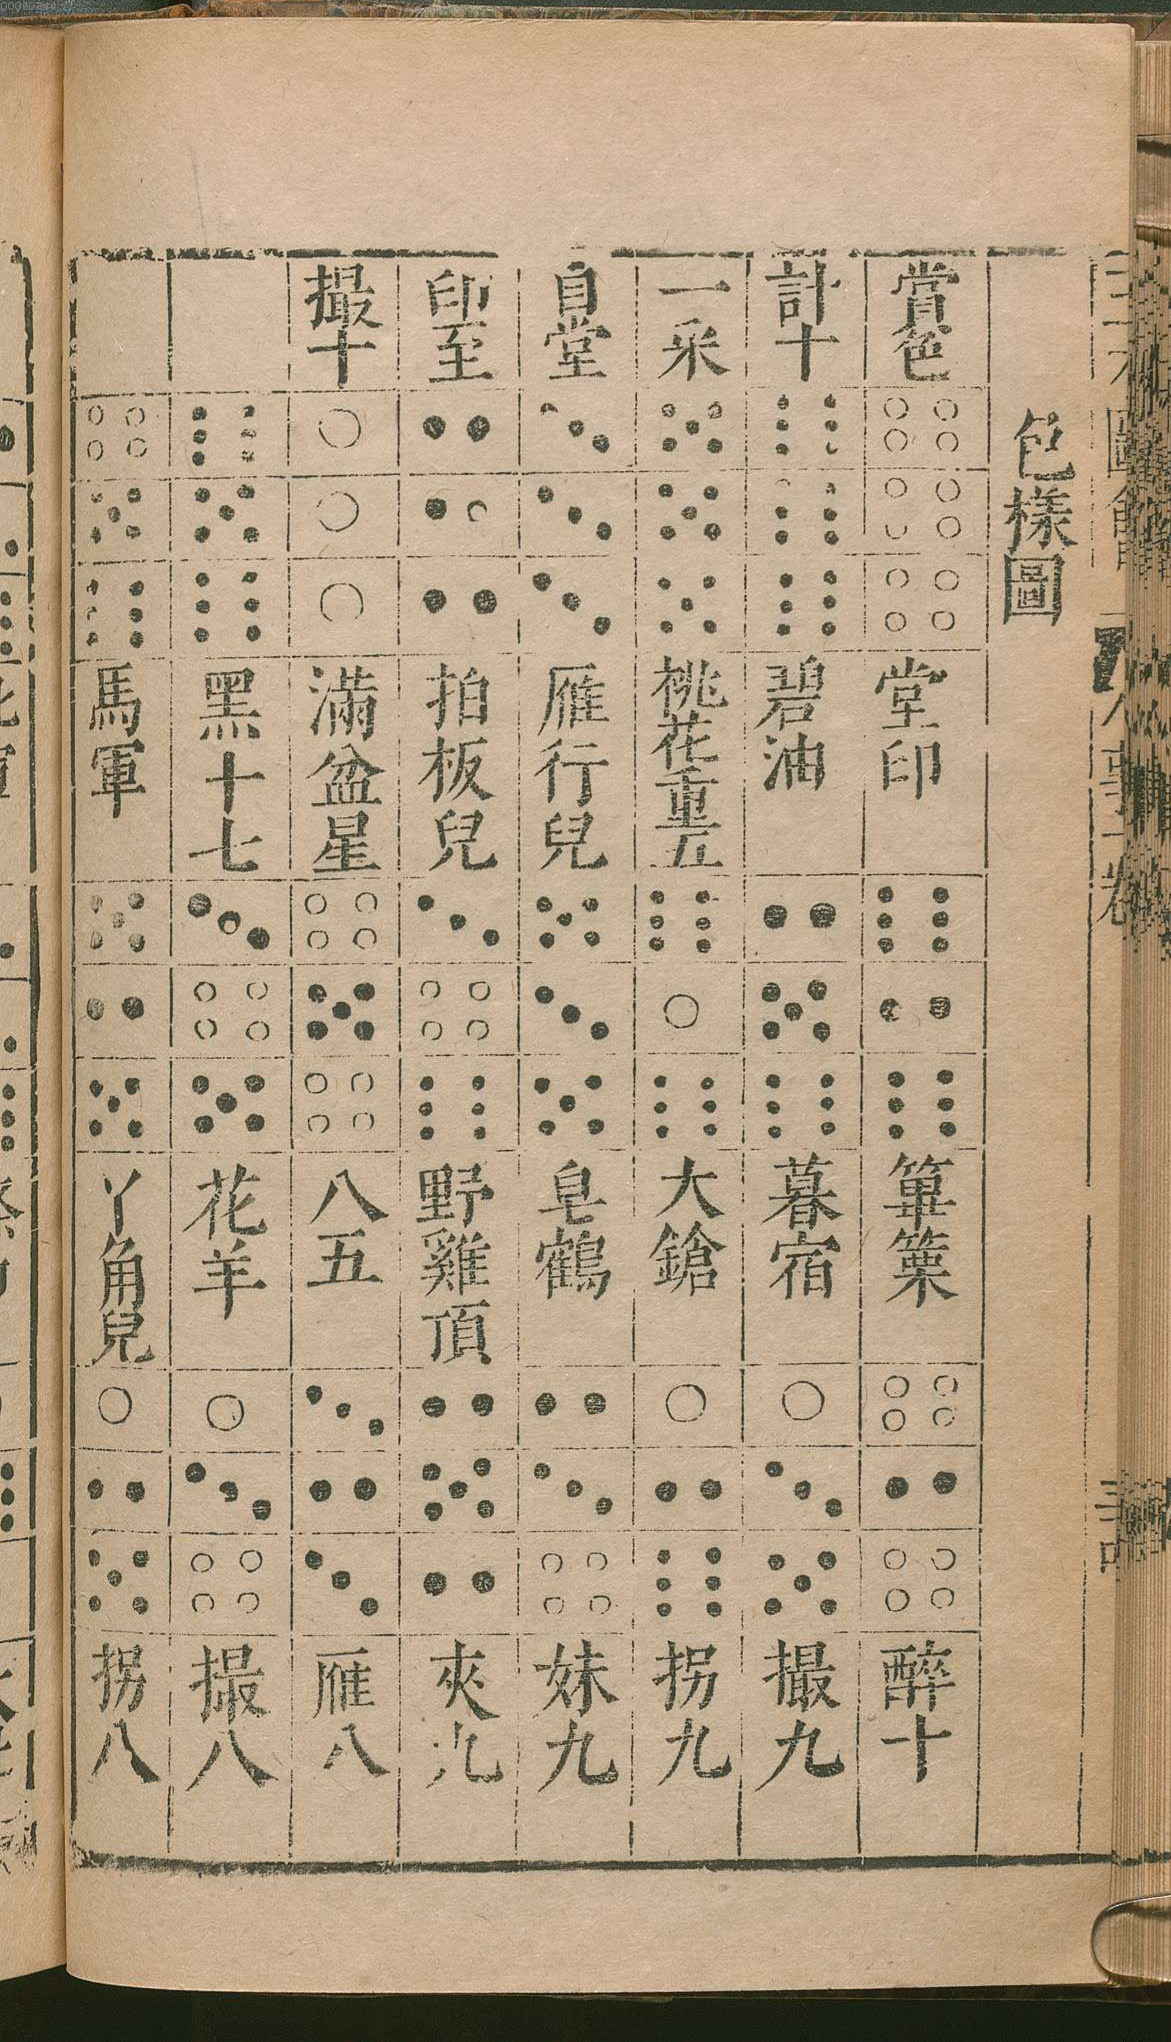 色樣圖
賞色 堂印 篳篥 醉十
計十 碧油 暮宿 撮九
一采 桃花重五 大鎗 拐九
自堂 雁行兒 皂鶴 妹九
印至 拍板兒 野雞頂 夾九
撮十 滿盆星 八五 雁八
黑十七 花羊 撮八
馬軍 丫角兒 拐八